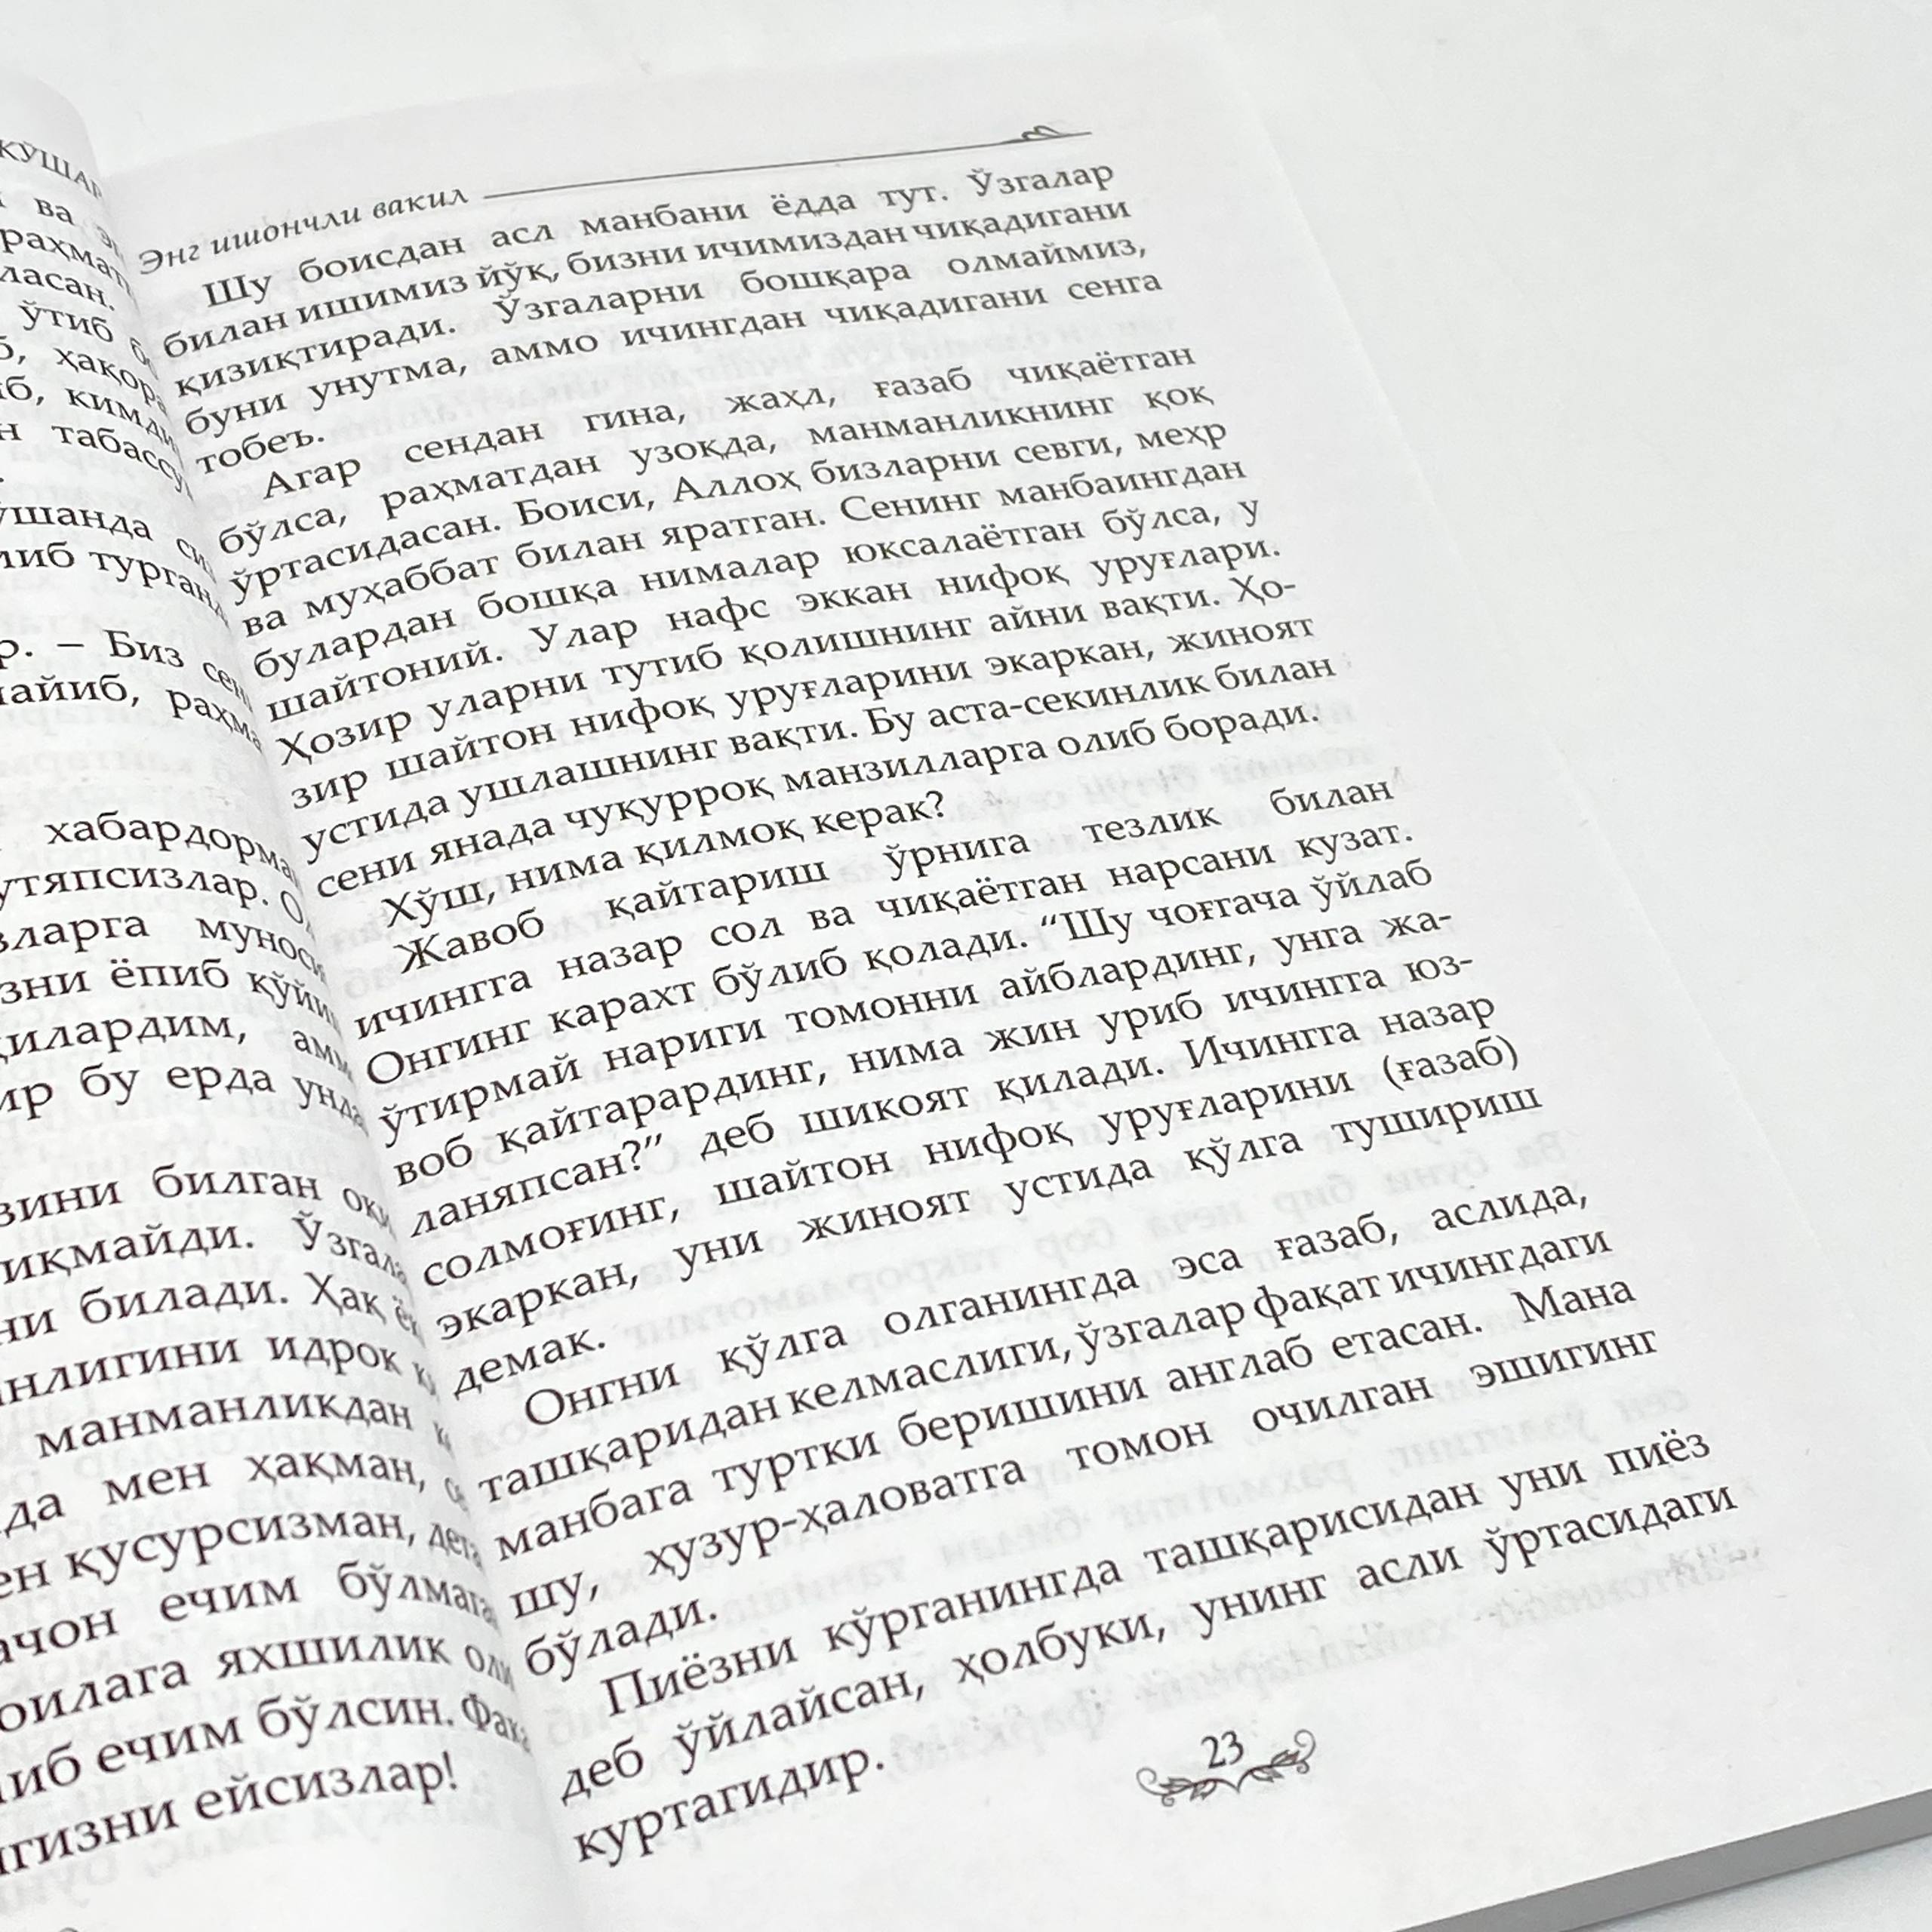 ва
ўтиб
ҳақора
кимди
табассу
турганд
– Биз
раҳма
хабардорма
муноси
ёпиб қўйи
амм
бу ерда унда
билган
Ўзгала
билади. Ҳақ
идрок
манманликдан
мен ҳақман,
қусурсизман,
ечим бўлмага
яхшилик
ечим бўлсин. Фақа
ейсизлар!
Энг ишончли вакил
Шу боисдан асл манбани ёдда тут. Ўзгалар
билан ишимиз йўқ, бизни ичимиздан чиқадигани
қизиқтиради. Ўзгаларни бошқара олмаймиз,
буни унутма, аммо ичингдан чиқадигани сенга
тобеъ.
Агар сендан гина, жаҳл, ғазаб чиқаётган
бўлса, раҳматдан узоқда, манманликнинг қоқ
ўртасидасан. Боиси, Аллоҳ бизларни севги, меҳр
ва муҳаббат билан яратган. Сенинг манбаингдан
булардан бошқа нималар юксалаётган бўлса, у
шайтоний. Улар нафс эккан нифоқ уруғлари.
Ҳозир уларни тутиб қолишнинг айни вақти. Ҳо-
зир шайтон нифоқ уруғларини экаркан, жиноят
устида ушлашнинг вақти. Бу аста-секинлик билан
сени янада чуқурроқ манзилларга олиб боради.
Хўш, нима қилмоқ керак?
Жавоб қайтариш ўрнига тезлик билан
ичингга назар сол ва чиқаётган нарсани кузат.
Онгинг карахт бўлиб қолади. “Шу чоғгача ўйлаб
ўтирмай нариги томонни айблардинг, унга жа-
воб қайтарардинг, нима жин уриб ичингга юз-
ланяпсан?” деб шикоят қилади. Ичингга назар
солмоғинг, шайтон нифоқ уруғларини (ғазаб)
экаркан, уни жиноят устида қўлга тушириш
демак.
Онгни қўлга олганингда эса ғазаб, аслида,
ташқаридан келмаслиги, ўзгалар фақат ичингдаги
манбага туртки беришини англаб етасан. Мана
шу, ҳузур-ҳаловатга томон очилган эшигинг
бўлади.
Пиёзни кўрганингда ташқарисидан уни пиёз
деб ўйлайсан, ҳолбуки, унинг асли ўртасидаги
куртагидир.
23